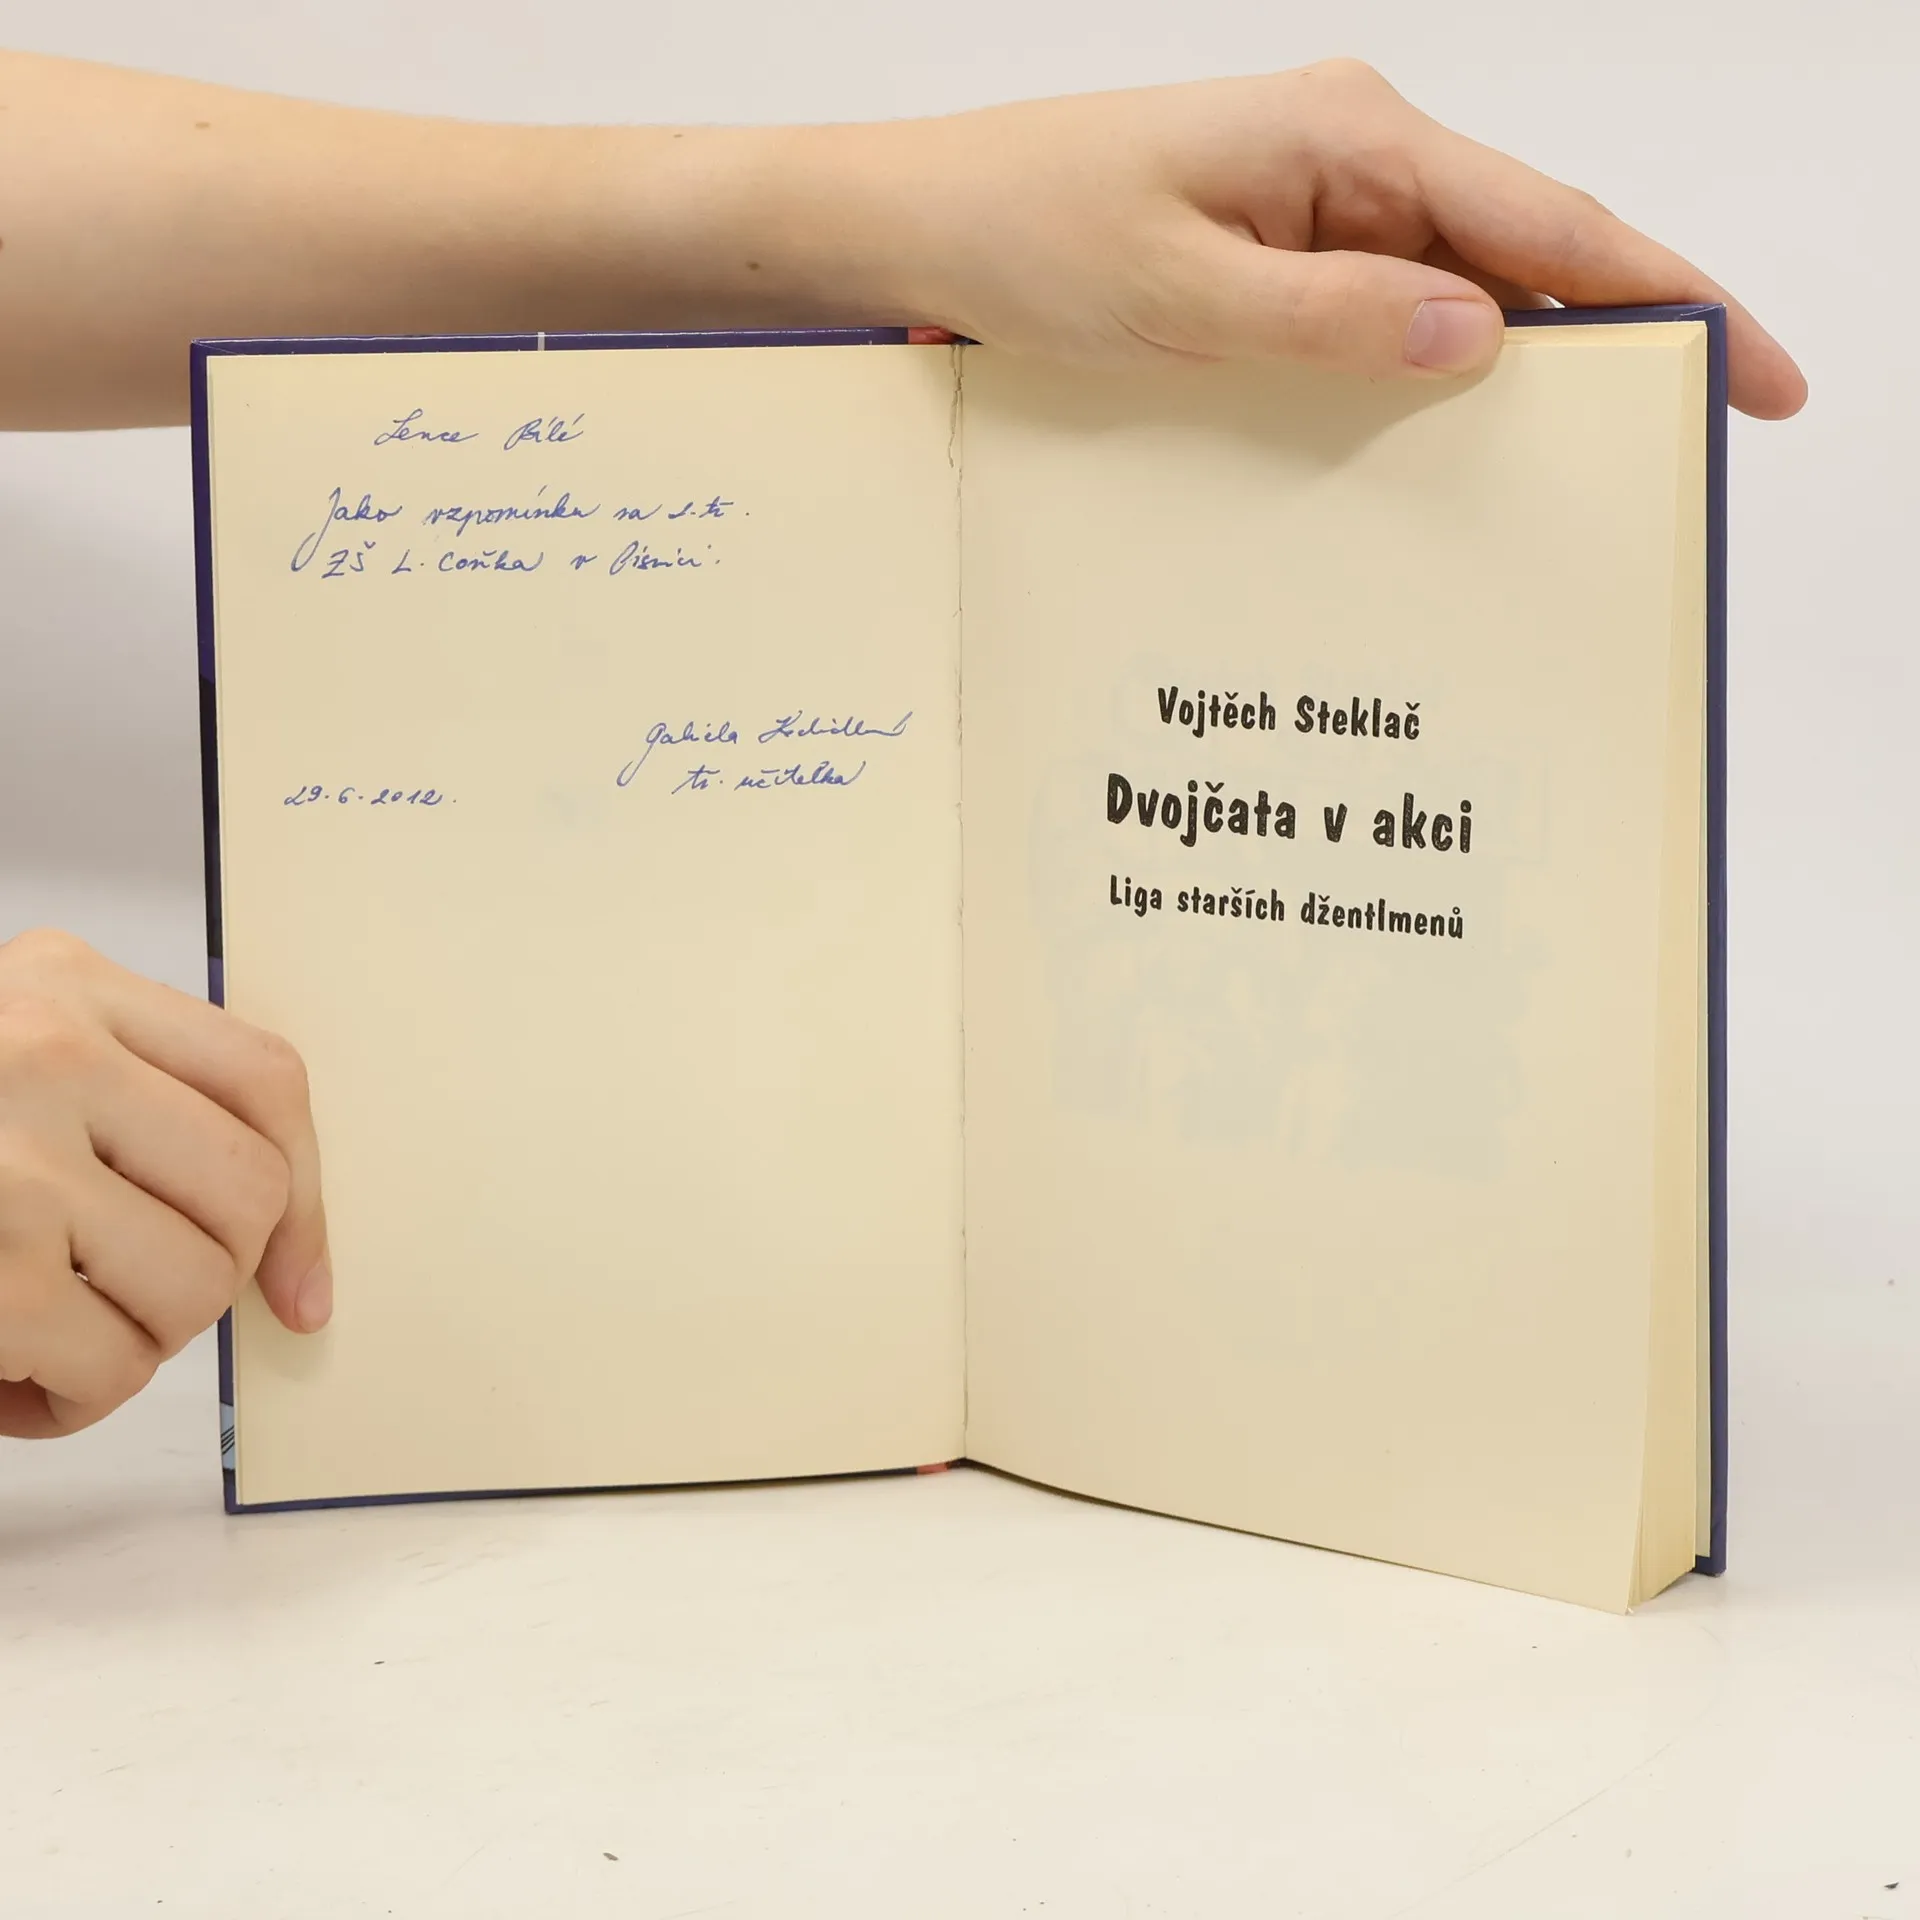 Lence Bílé
Jako vzpomínku na 2. tř.
ZŠ L. Coňka v Písnici.
Gabriela
tř. učitelka
29.6.2012.
Vojtěch Steklač
Dvojčata v akci
Liga starších džentlmenů